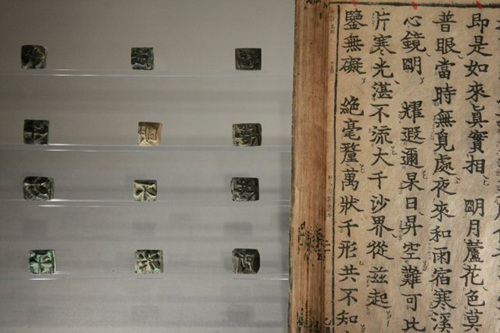 即是如來真實相 朙月蘆花色莫
普眼當時無覓處夜來和雨宿寒溪
心鏡朙 耀遐邇杲日昇空難可比
片寒光湛不流大千沙界從茲起
鑒無礙 絕毫釐萬狀千形共不知